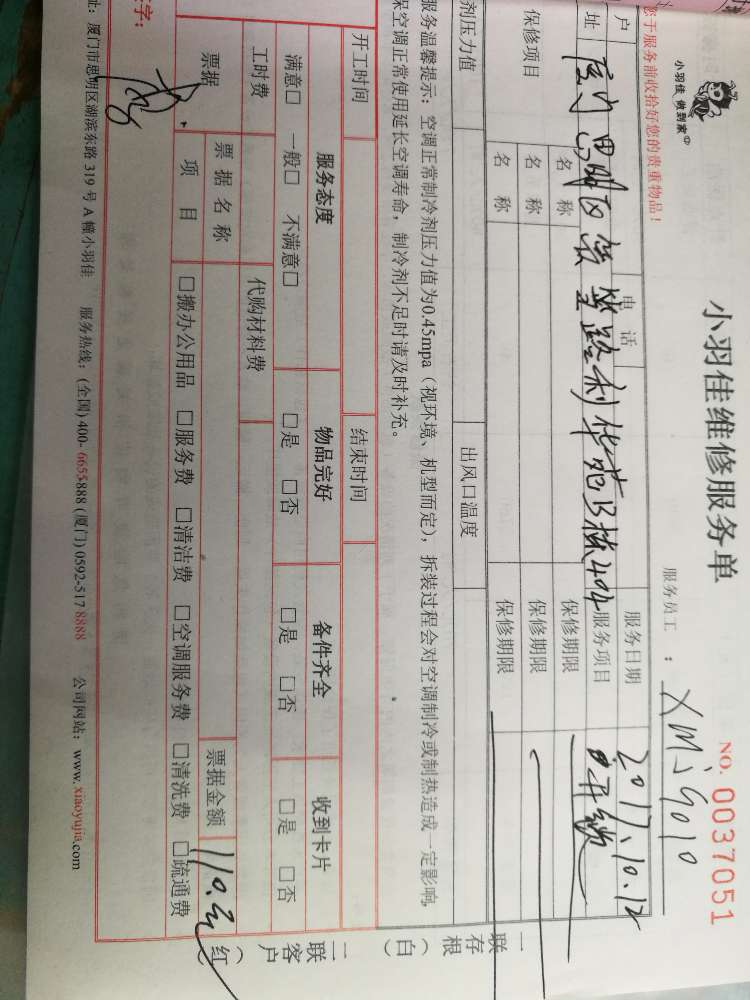 小羽佳 做到家
小羽佳维修服务单
NO. 0037051
服务员工 :
您于服务前收拾好您的贵重物品!
户
电 话
服务日期
2017.10.12
址
厦门思明区
路利华苑B栋404
服务项目
开锁
保修项目
名 称
保修期限
名 称
保修期限
名 称
保修期限
剂压力值
出风口温度
服务温馨提示:空调正常制冷剂压力值为0.45mpa(视环境、机型而定),拆装过程会对空调制冷或制热造成一定影响,
保空调正常使用延长空调寿命,制冷剂不足时请及时补充。
开工时间
结束时间
服务态度
物品完好
备件齐全
收到卡片
满意□ 一般□ 不满意□
□是 □否
□是 □否
□是 □否
工时费
代购材料费
票据
票 据 名 称
票据金额
110.元
项 目
□搬办公用品 □服务费 □清洁费 □空调服务费 □清洗费 □疏通费
字:
址:厦门市思明区湖滨东路 319 号 A 幢小羽佳 服务热线:(全国) 400- 6655888 (厦门) 0592-517 8888 公司网站:www.xiaoyujia.com
一联存根(白)
二联客户(红)